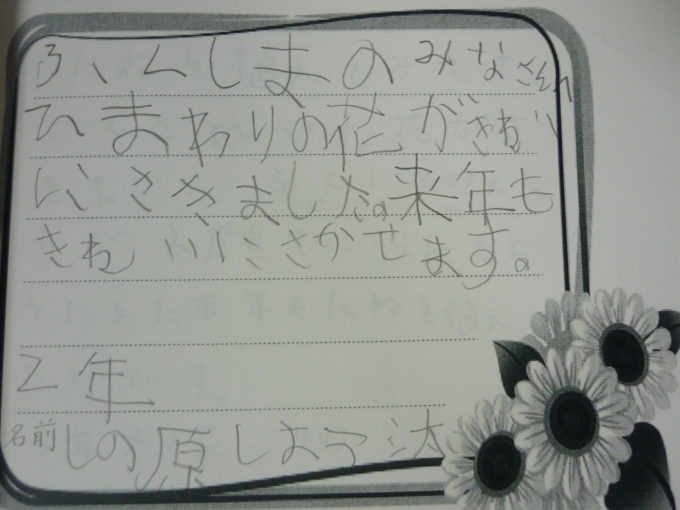 ふくしまのみなさん
ひまわりの花がきれい
にさきました。来年も
きれいにさかせます。
2年
名前 しの原しょう汰